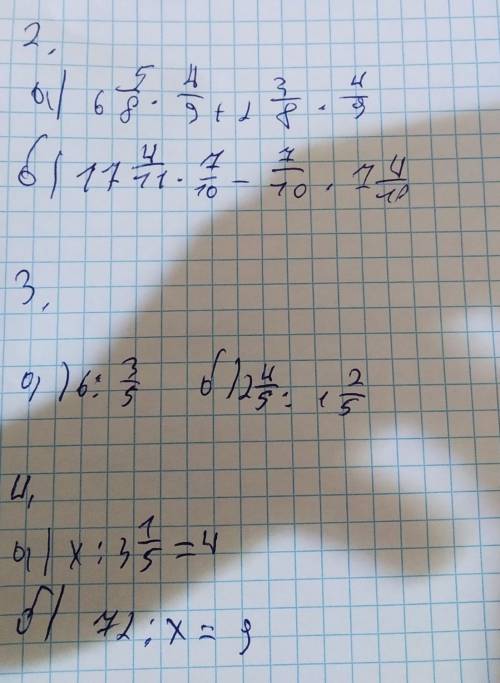 2,
а) 6 5/8 · 4/9 + 2 3/8 · 4/9
б) 17 4/11 · 7/10 - 7/10 · 7 4/10
3,
а) 6 : 3/5 б) 2 4/5 : 1 2/5
4,
а) x : 3 1/5 = 4
б) 72 : x = 9